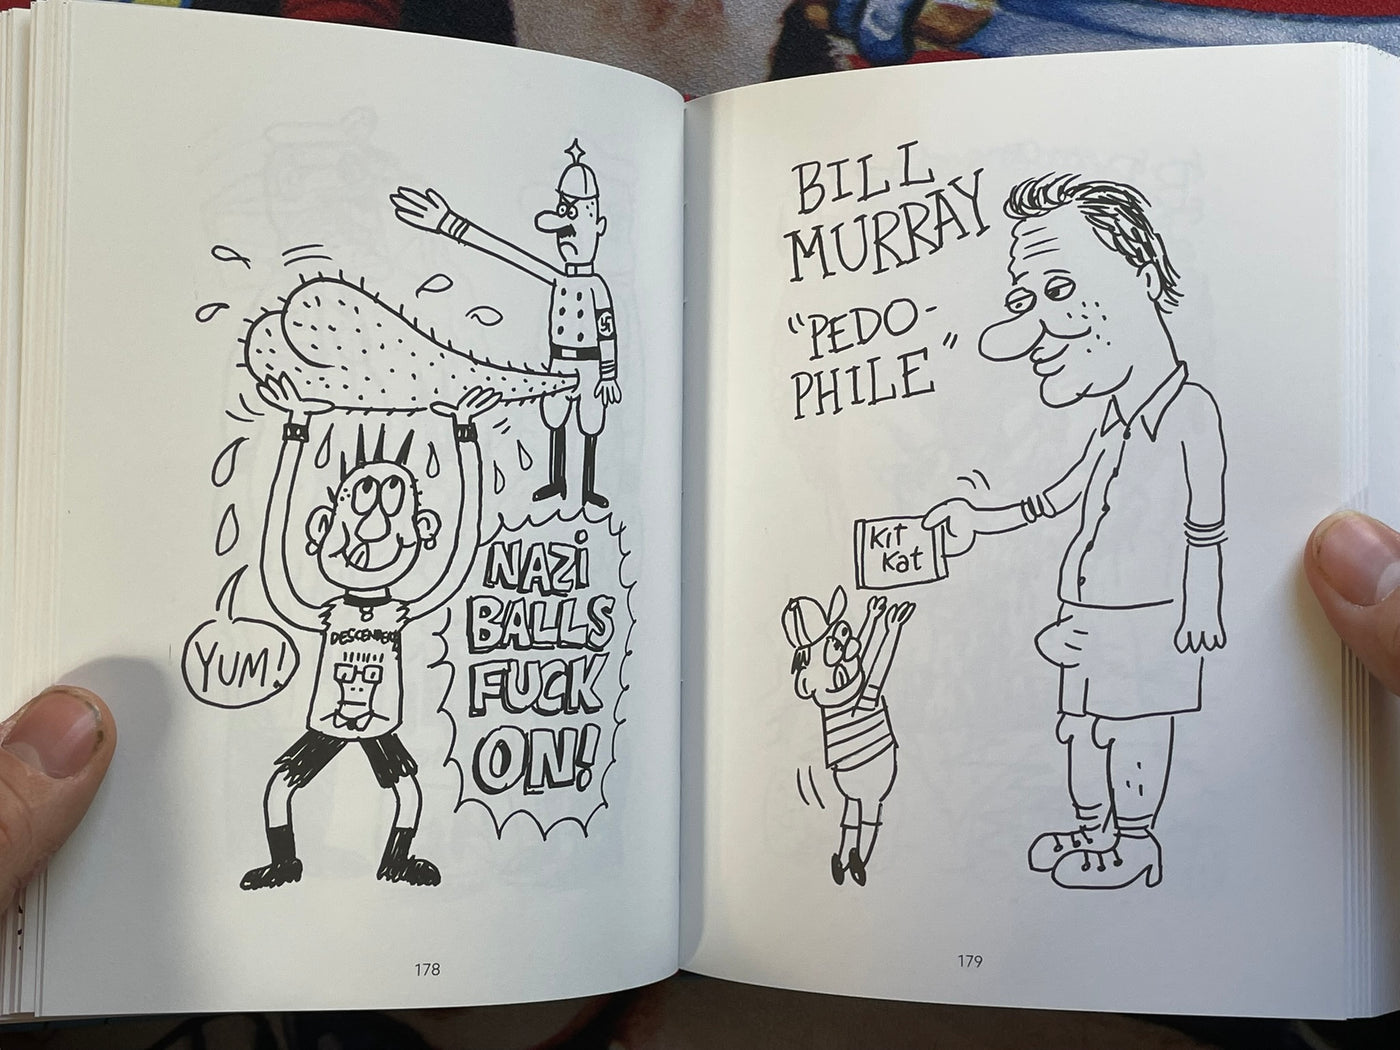 YUM!
DESCENDENTS
NAZI
BALLS
FUCK
ON!
178
BILL
MURRAY
"PEDO-
PHILE"
Kit
Kat
179